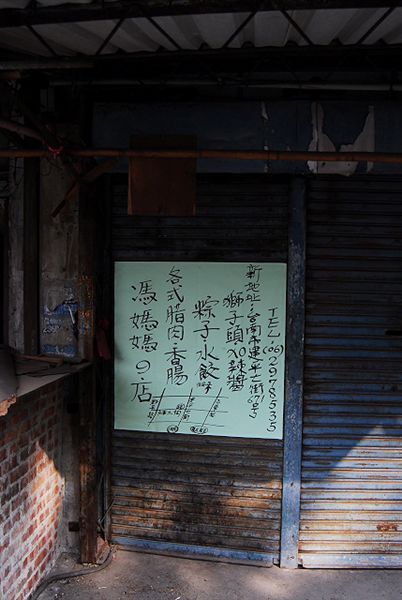 TEL:(06)2978535
新地址:台南市建平二街67号
獅子頭XO辣醬
粽子水餃
各式腊肉香腸
馮媽媽の店